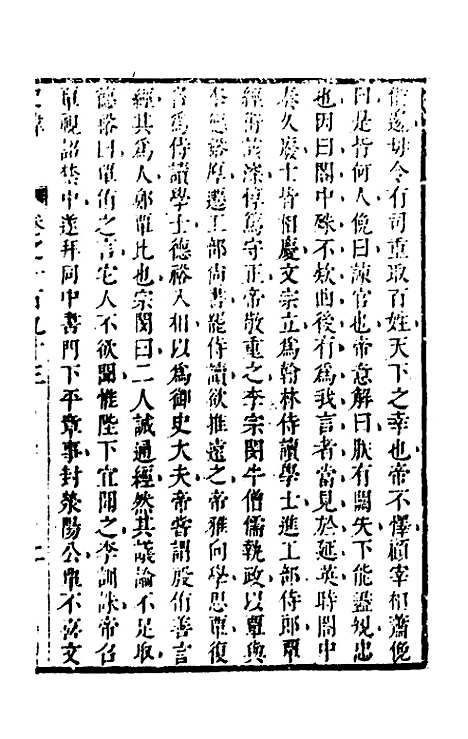 備邊切今有司重取百姓天下之幸也帝不懌顧宰相蕭俛
曰是皆何人俛曰諫官也帝意解曰朕有闕失下能盡規忠
也因曰閤中殊不欵曲後有爲我言者當見於延英時閤中
奏久廢士皆相慶文宗立爲翰林侍講學士進工部侍郎覃
經術該深諄篤守正帝敬重之李宗閔牛僧儒執政以覃與
李德裕厚遷工部尚書罷侍讀欲推遠之帝雅向學思覃復
召爲侍讀學士德裕入相以爲御史大夫帝嘗謂殷侑善言
經其爲人鄭覃比也宗閔曰二人誠通經然其議論不足取
德裕曰覃侑之言它人不欲聞惟陛下宜聞之李訓誅帝召
覃視詔禁中遂拜同中書門下平章事封滎陽公覃不喜文
卷之一百九十三